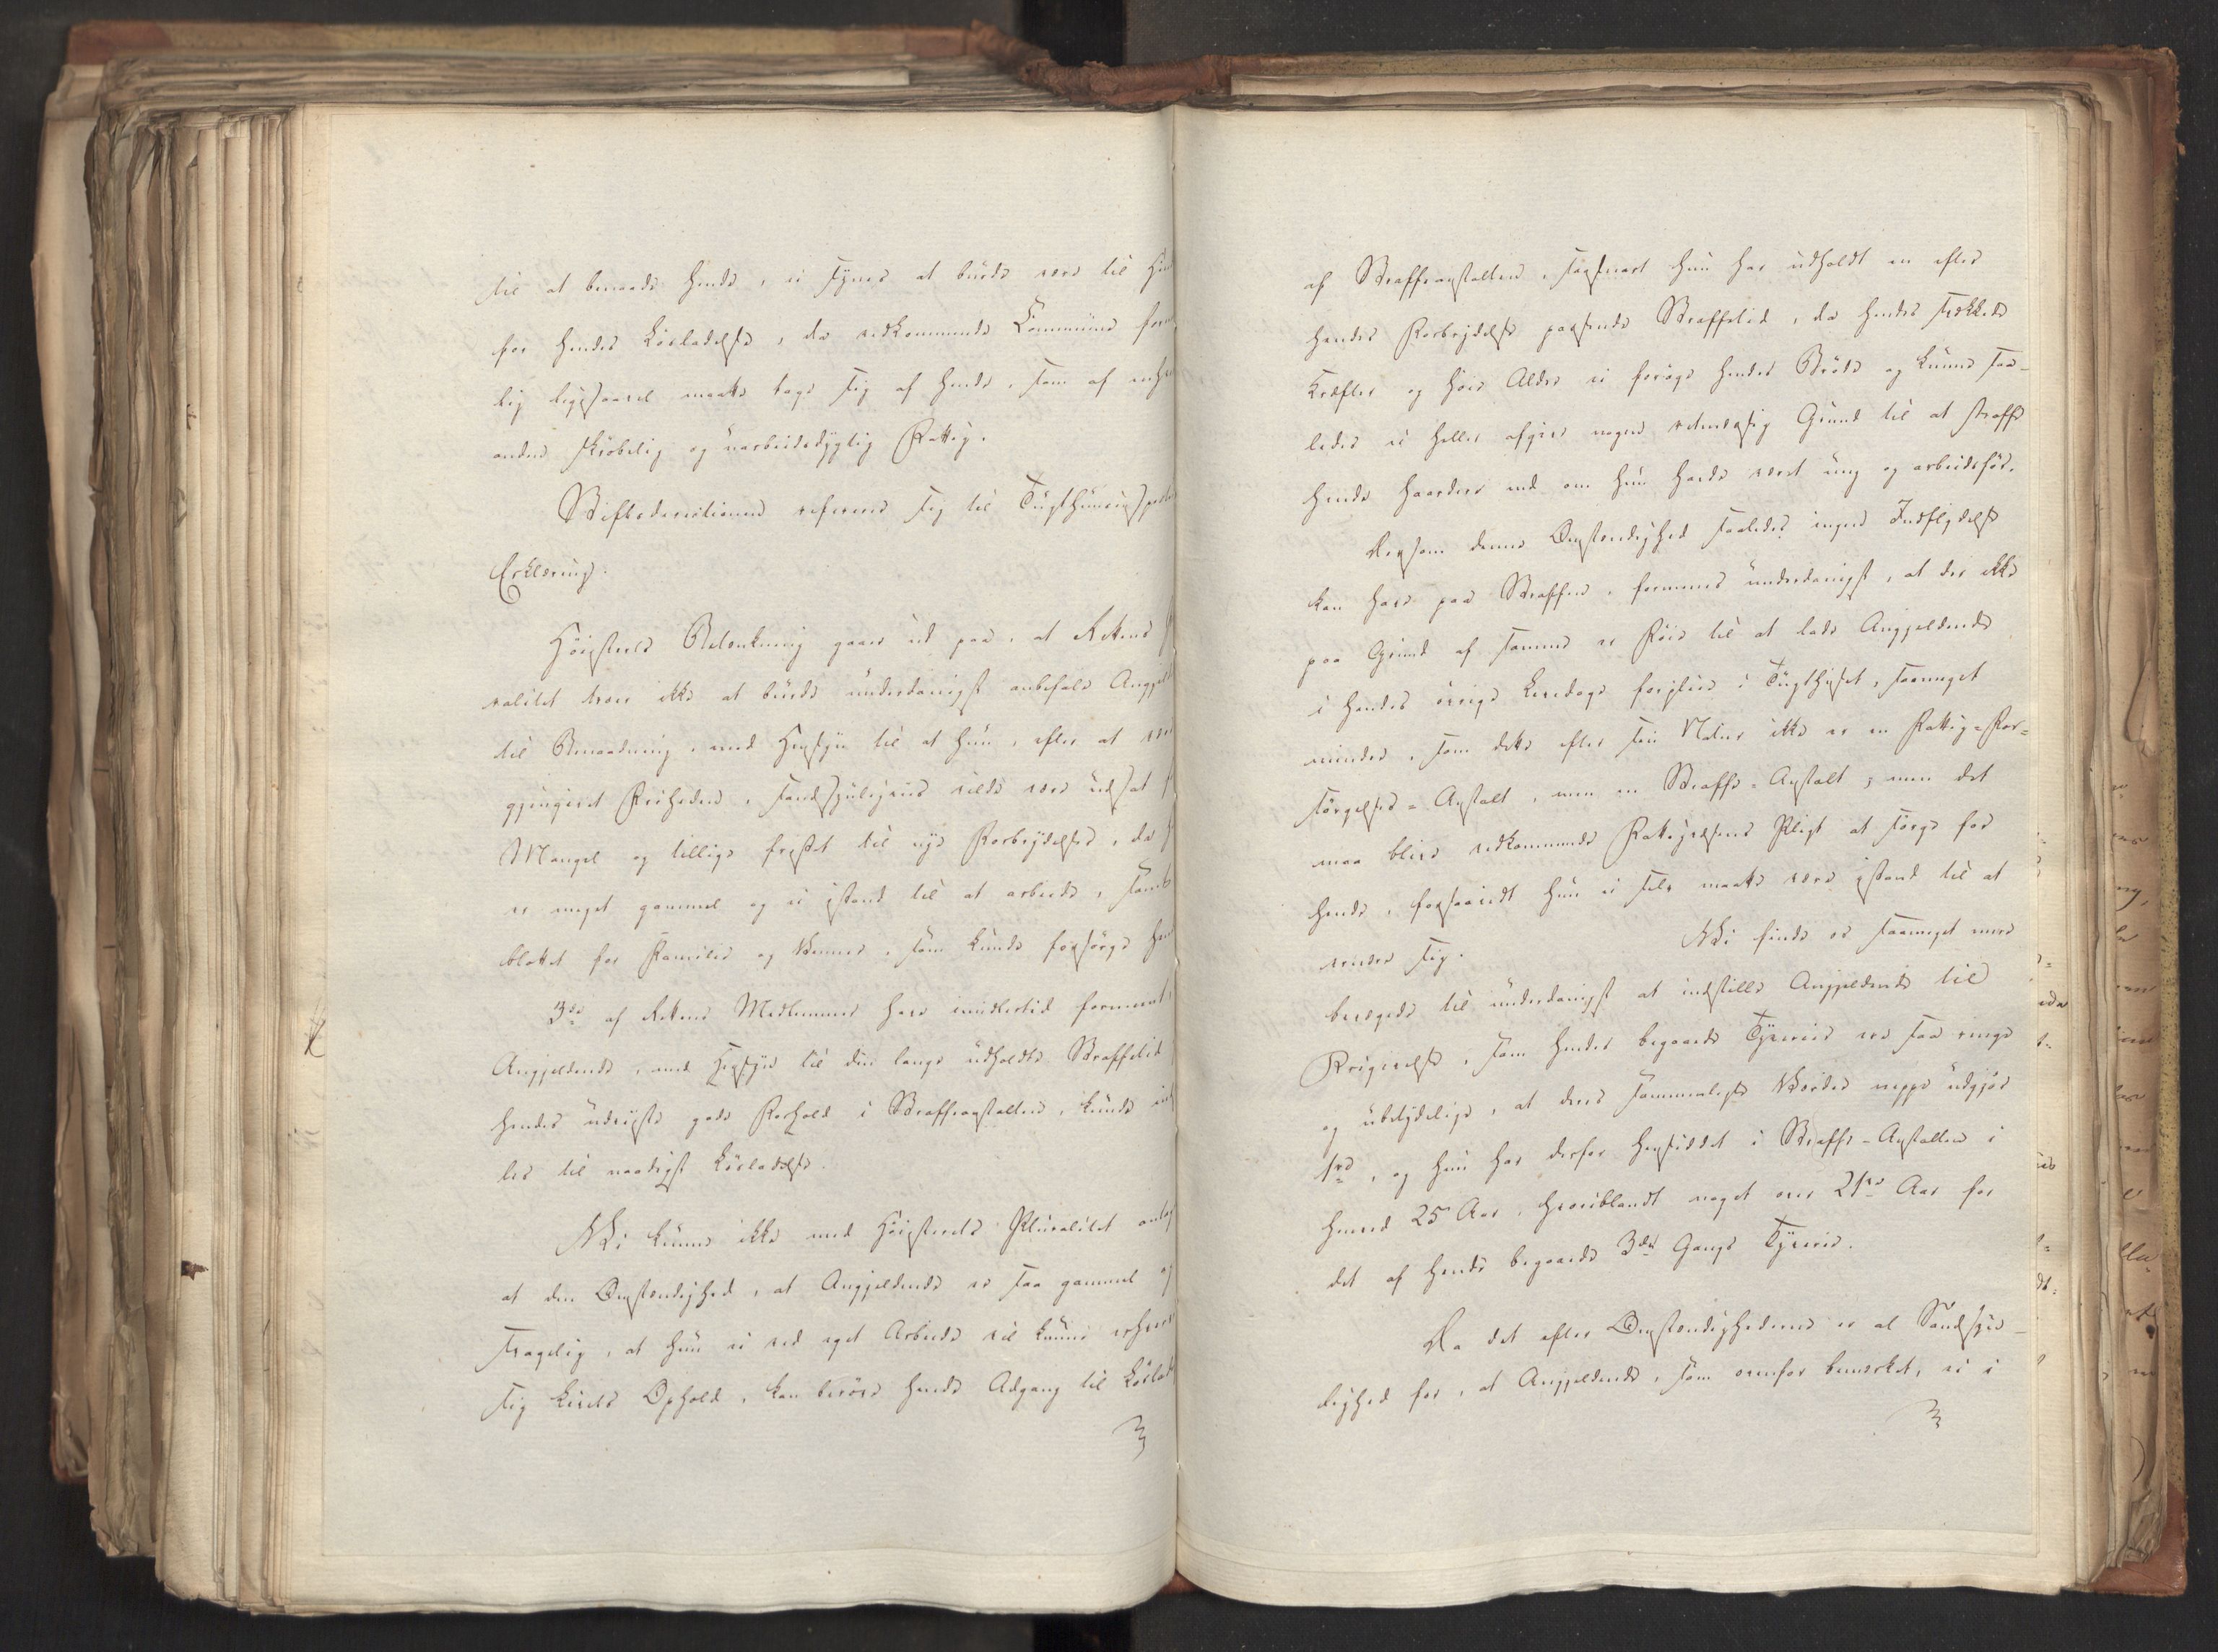 til at benaade hende, ei synes at burde være til Hin
for hendes Løsladelse, da vedkommende Commune form
lig ligesaavel maatte tage sig af hende, som af enhver
anden skrøbelig og uarbeidsdygtig Fattig.
Stiftsdirectionen refererer sig til Tugthuusinspect
Erklæring.
Høiesterets Betænkning gaaer ud paa, at Rettens
ralitet troer ikke at burde underdanigst anbefale Angjeld
til Benaadning, med Hensyn til at hun, efter at være
gjengivet Friheden, sandsynligviis vilde være udsat f
Mangel og tillige fristet til nye Forbrydelser, da h
er meget gammel og ei istand til at arbeide, samt
blottet for Familie og Venner, som kunde forsørge hen
3de af Rettens Medlemmer have imidlertid formeent,
Angjeldende, med Hensyn til den lange udholdte Straffetid
hendes udviiste gode Forhold i Straffeanstalten, kunde ind
les til naadigst Løsladelse.
Vi kunne ikke med Høiesterets Pluralitet antag
at den Omstændighed, at Angjeldende er saa gammel og
svagelig, at hun ei ved eget Arbeide vil kunne erhverve
sig Livets Ophold, kan berøve hende Adgang til Løslad
af Straffeanstalten, saasnart hun har udholdt en efter
hendes Forbrydelse passende Straffetid, da hendes svækkede
Kræfter og høie Alder ei forøge hendes Brøde og kunne saa-
ledes ei heller afgive nogen retmæssig Grund til at straffe
hende haardere end om hun havde været ung og arbeidsfør.
Ligesom denne Omstændighed saaledes ingen Indflydelse
kan have paa Straffen, formenes underdanigst, at der ikke
paa Grund af samme er Føie til at lade Angjeldende
i hendes øvrige Levedage forblive i Tugthuset, saameget
mindre, som dette efter sin Natur ikke er en Fattig-For-
sørgelses-Anstalt, men en Straffe-Anstalt; men det
maa blive vedkommende Fattigvæsens Pligt at sørge for
hende, forsaavidt hun ei selv maatte være istand til at
ernære sig.
Vi finde os saameget mere
bevægede til underdanigst at indstille Angjeldende til
Frigivelse, som hendes begaaede Tyverier ere saa ringe
og ubetydelige, at deres sammenlagte Værdie neppe udgjør
1rd, og hun har derfor hensiddet i Straffe-Anstalten i
henved 25 Aar, hvoriblandt noget over 21ve Aar for
det af hende begaaede 3die Gangs Tyverie.
Da det efter Omstændighederne er al Sandsyn-
lighed for, at Angjeldende, som ovenfor bemærket, ei i